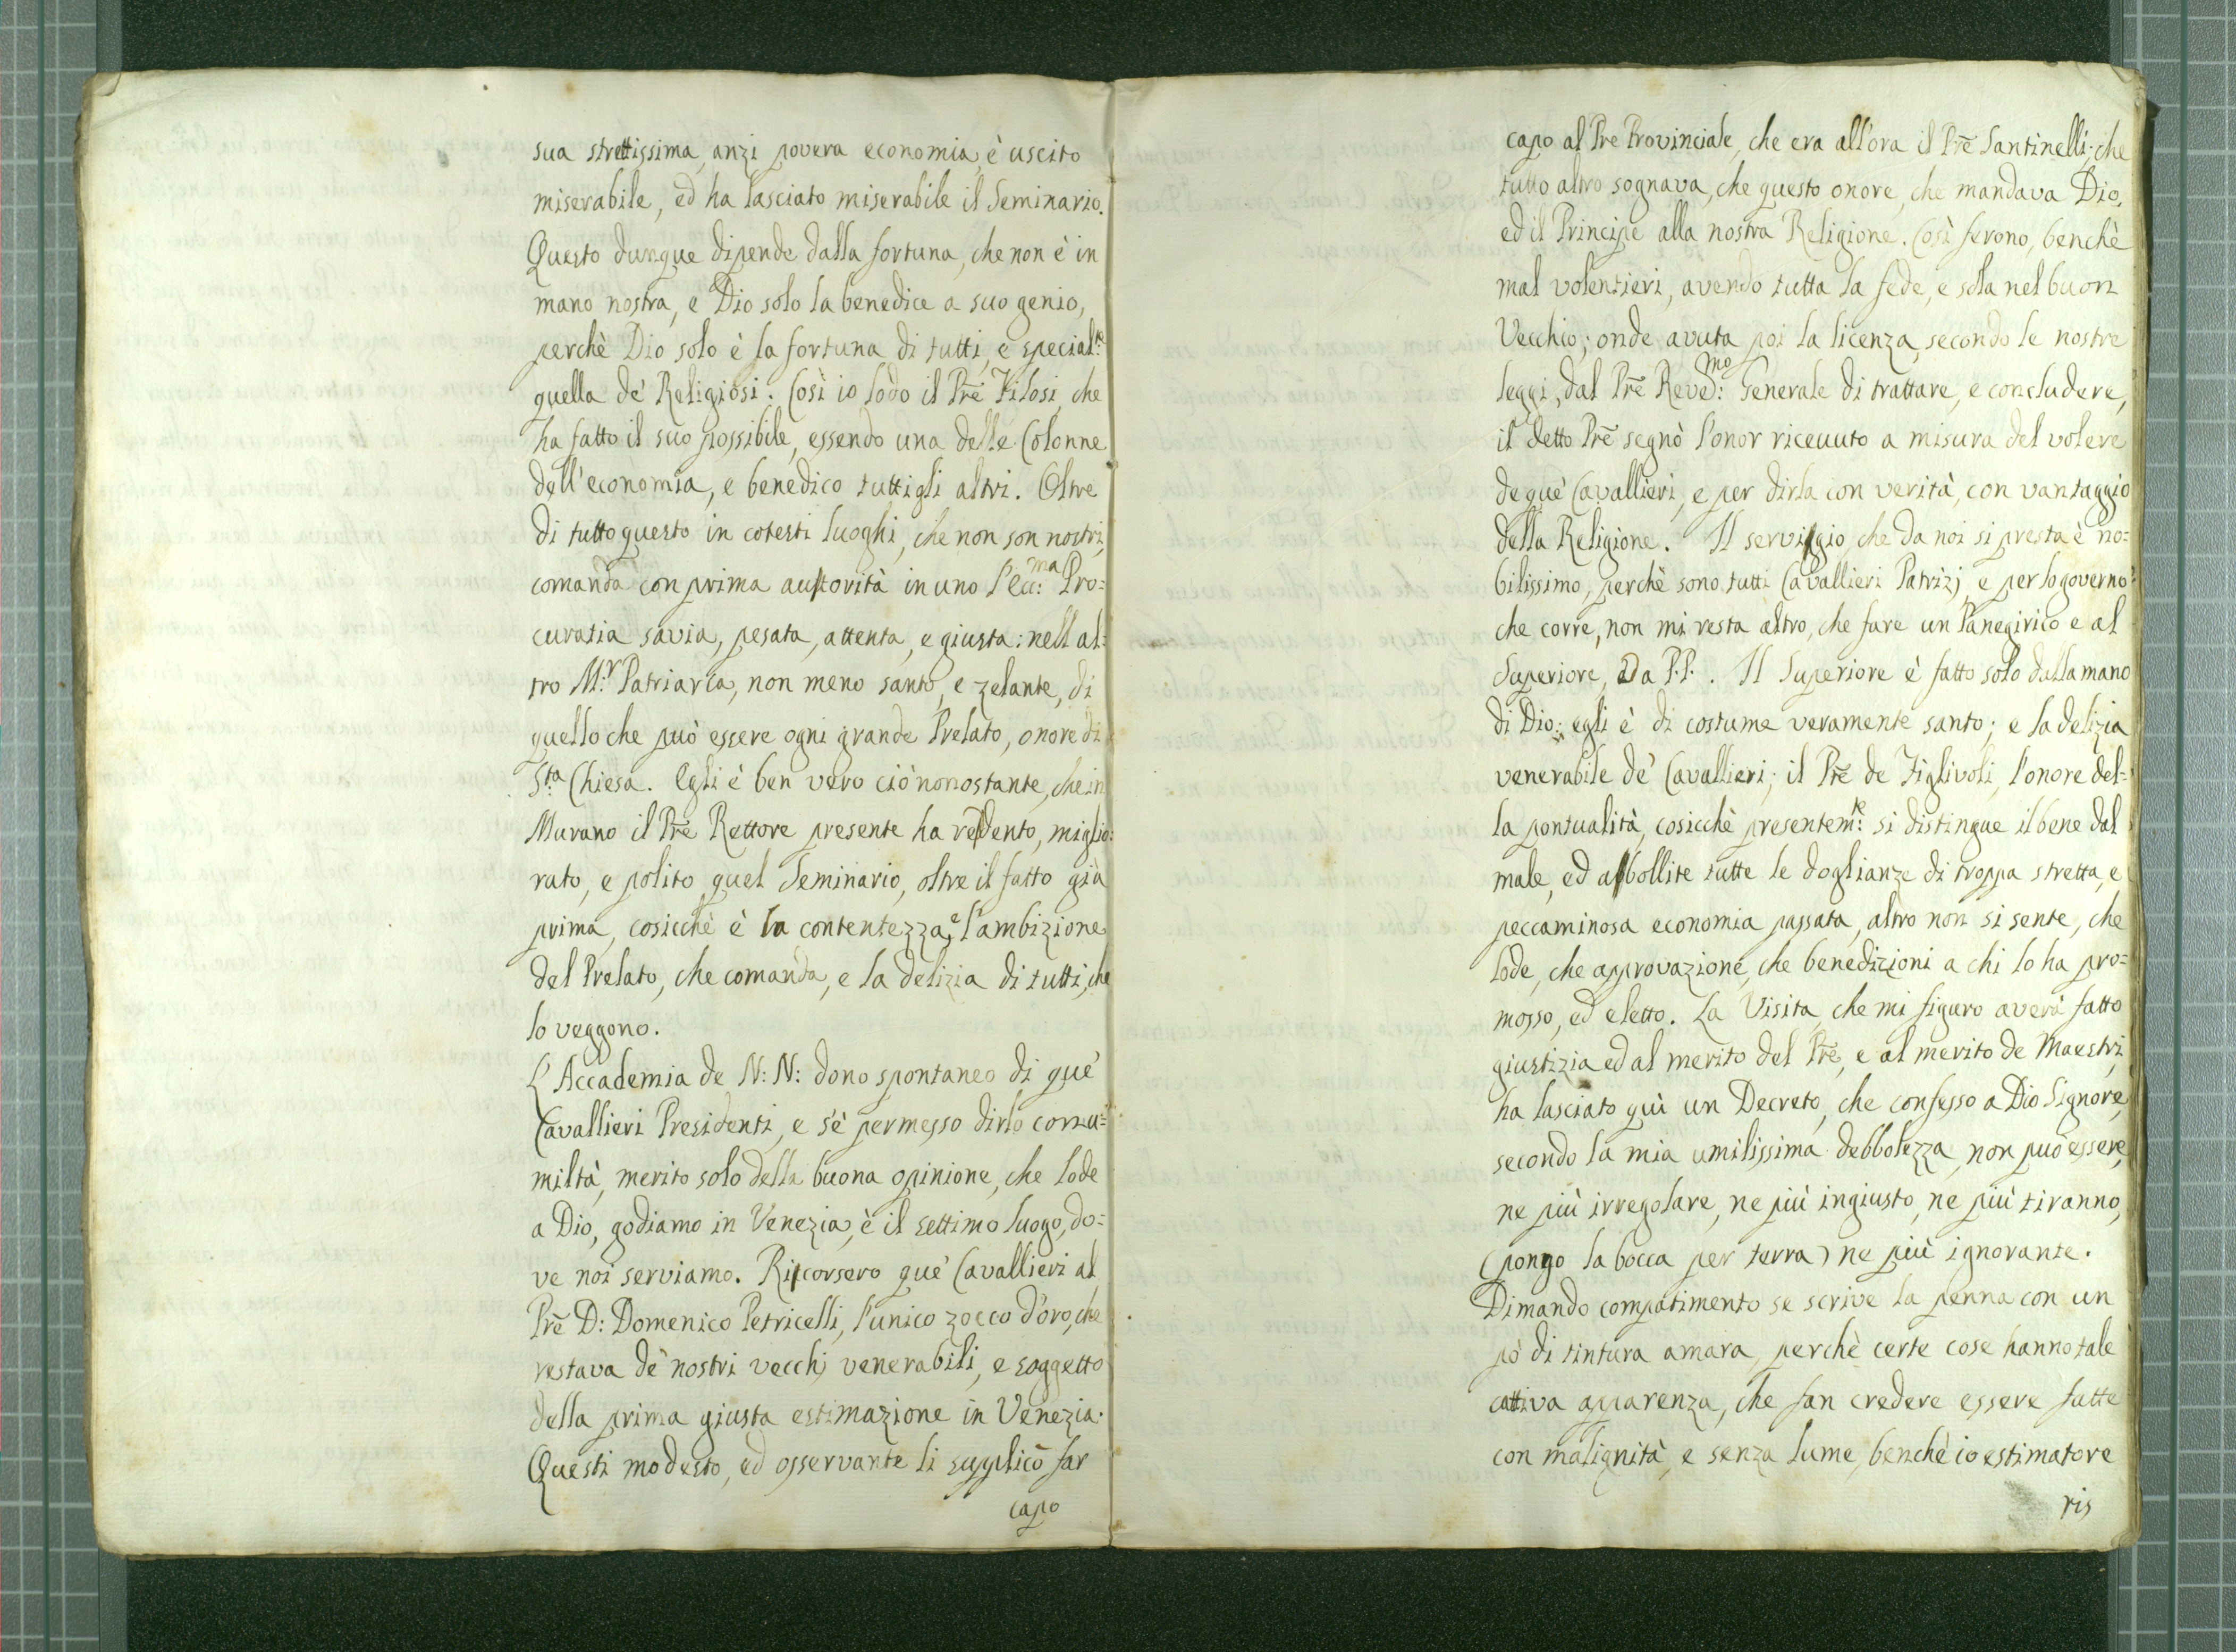 sua strettissima, anzi povera economia, è uscito
miserabile, ed ha lasciato miserabile il Seminario.
Questo dunque dipende dalla fortuna, che non è in
mano nostra, e Dio solo la benedice a suo genio,
perchè Dio solo è la fortuna di tutti, e special:te
quella de' Religiosi. Così io lodo il Prē Filosi, che
ha fatto il suo possibile, essendo una delle Colonne
dell'economia, e benedico tutti gli altri. Oltre
di tutto questo in cotesti luoghi, che non son nostri,
comanda con prima autorità in uno l'Ecc:ma Pro=
curatia savia, pesata, attenta, e giusta: nell al=
tro M:r Patriarca, non meno santo, e zelante, di
quello che può essere ogni grande Prelato, onore di
S:ta Chiesa. Egli è ben vero ciò nonostante, che in
Murano il Prē Rettore presente ha redento, miglio=
rato, e polito quel Seminario, oltre il fatto già
prima, cosicchè è la contentezza, e l'ambizione
del Prelato, che comanda, e la delizia di tutti, che
lo veggono.
L'Accademia de N: N: dono spontaneo di que'
Cavallieri Presidenti, e s'è permesso dirlo con u=
miltà, merito solo della buona opinione, che lode
a Dio, godiamo in Venezia, è il settimo luogo, do=
ve noi serviamo. Ricorsero que' Cavallieri al
Prē D: Domenico Petricelli, l'unico zocco d'oro, che
restava de' nostri vecchj venerabili, e soggetto
della prima giusta estimazione in Venezia.
Questi modesto, ed osservante li supplicò far
capo
capo al Pre Provinciale, che era all'ora il Prē Santinelli; che
tutto altro sognava, che questo onore, che mandava Dio,
ed il Principe alla nostra Religione. Così ferono, benchè
mal volentieri, avendo tutta la fede, e sola nel buon
Vecchio; onde avuta poi la licenza, secondo le nostre
leggi, dal Prē Reved:mo Generale di trattare, e concludere,
il detto Prē segnò l'onor ricevuto a misura del volere
de què Cavallieri, e per dirla con verità, con vantaggio
della Religione. Il servigio, che da noi si presta è no=
bilissimo, perchè sono tutti Cavallieri Patrizj, e per lo governo
che corre, non mi resta altro, che fare un Panegirico e al
Superiore, Da P.P. . Il Superiore è fatto solo dalla mano
di Dio: egli è di costume veramente santo; e la delizia
venerabile de' Cavallieri; il Prē de Figlivoli, l'onore del=
la pontualità, cosicchè presentem:te si distingue il bene dal
male, ed abbollite tutte le doglianze di troppa stretta, e
peccaminosa economia passata, altro non si sente, che
lode, che approvazione, che benedizioni a chi lo ha pro=
mosso, ed eletto. La Visita, che mi figuro averà fatto
giustizia ed al merito del Prē, e al merito de Maestri,
ha lasciato quì un Decreto, che confesso a Dio Signore,
secondo la mia umilissima debbolezza, non può essere,
ne più irregolare, ne più ingiusto, ne più tiranno,
(pongo la bocca per terra) ne più ignorante.
Dimando compatimento se scrive la penna con un
pò di tintura amara, perchè certe cose hanno tale
cattiva aparenza, che fan credere essere fatte
con malignità, e senza lume, benchè io estimatore
ris